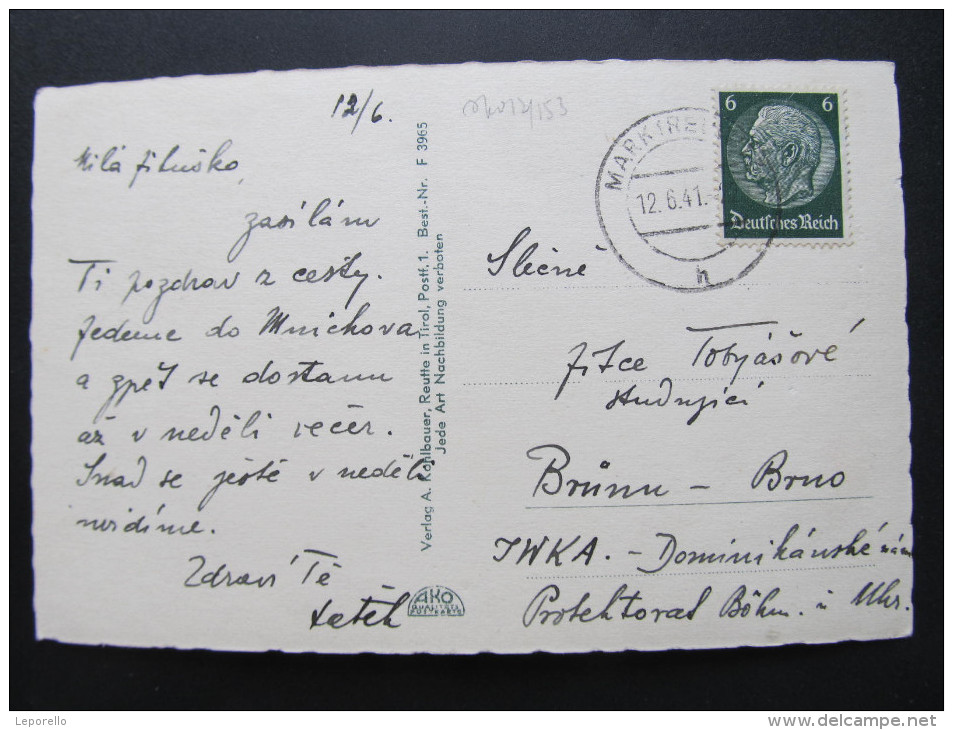 12/6.
Milá Jituško,
zasílám
Ti pozdrav z cesty.
Jedeme do Mnichova
a zpět se dostanu
až v neděli večer.
Snad se ještě v neděli
uvidíme.
Zdraví Tě
Verlag A. Kohlbauer, Reutte in Tirol, Postf. 1. Best.-Nr. F 3965
Jede Art Nachbildung verboten
AKO
QUALITÄTS
POSTKARTE
MARKTRE
12.6.41.
h
6 6
Deutsches Reich
Slečně
Jitce Tobyášové
studující
Brünn - Brno
JWKA. - Dominikánské nám
Protektorat Böhm. u Mhr.
Leporello
www.delcampe.net